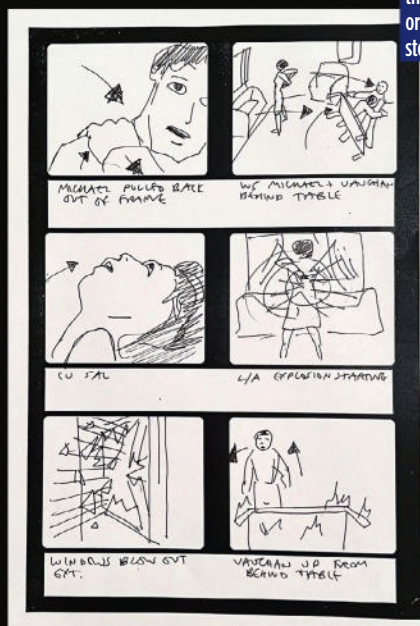 th
or
sto
MICHAEL PULLED BACK
OUT OF FRAME
WS MICHAEL + VAUGHAN
BEHIND TABLE
CU SAL
L/A EXPLOSION STARTING
WINDOWS BLOW OUT
EXT.
VAUGHAN UP FROM
BEHIND TABLE